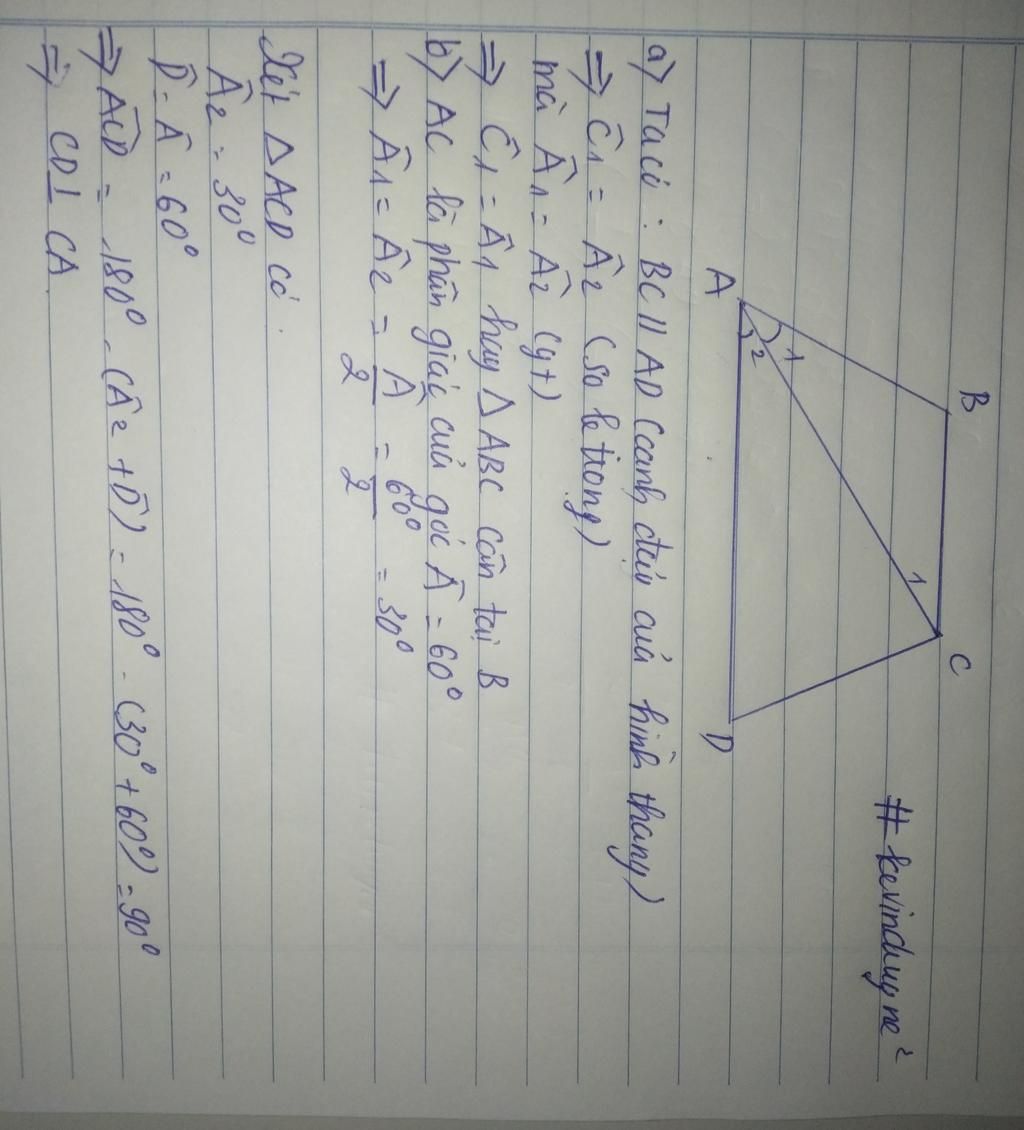 #kevinduyne²
B
C
1
1
2
A
D
a) Ta có : BC // AD (cạnh đáy của hình thang)
=> Ĉ1 = Â2 (so le trong)
mà Â1 = Â2 (gt)
=> Ĉ1 = Â1 hay △ABC cân tại B
b) AC là phân giác của góc Â = 60°
=> Â1 = Â2 = Â/2 = 60°/2 = 30°
Xét △ACD có .
Â2 = 30°
D̂ = Â = 60°
=> ACD = 180° - (Â2 + D̂) = 180° - (30° + 60°) = 90°
=> CD ⊥ CA.